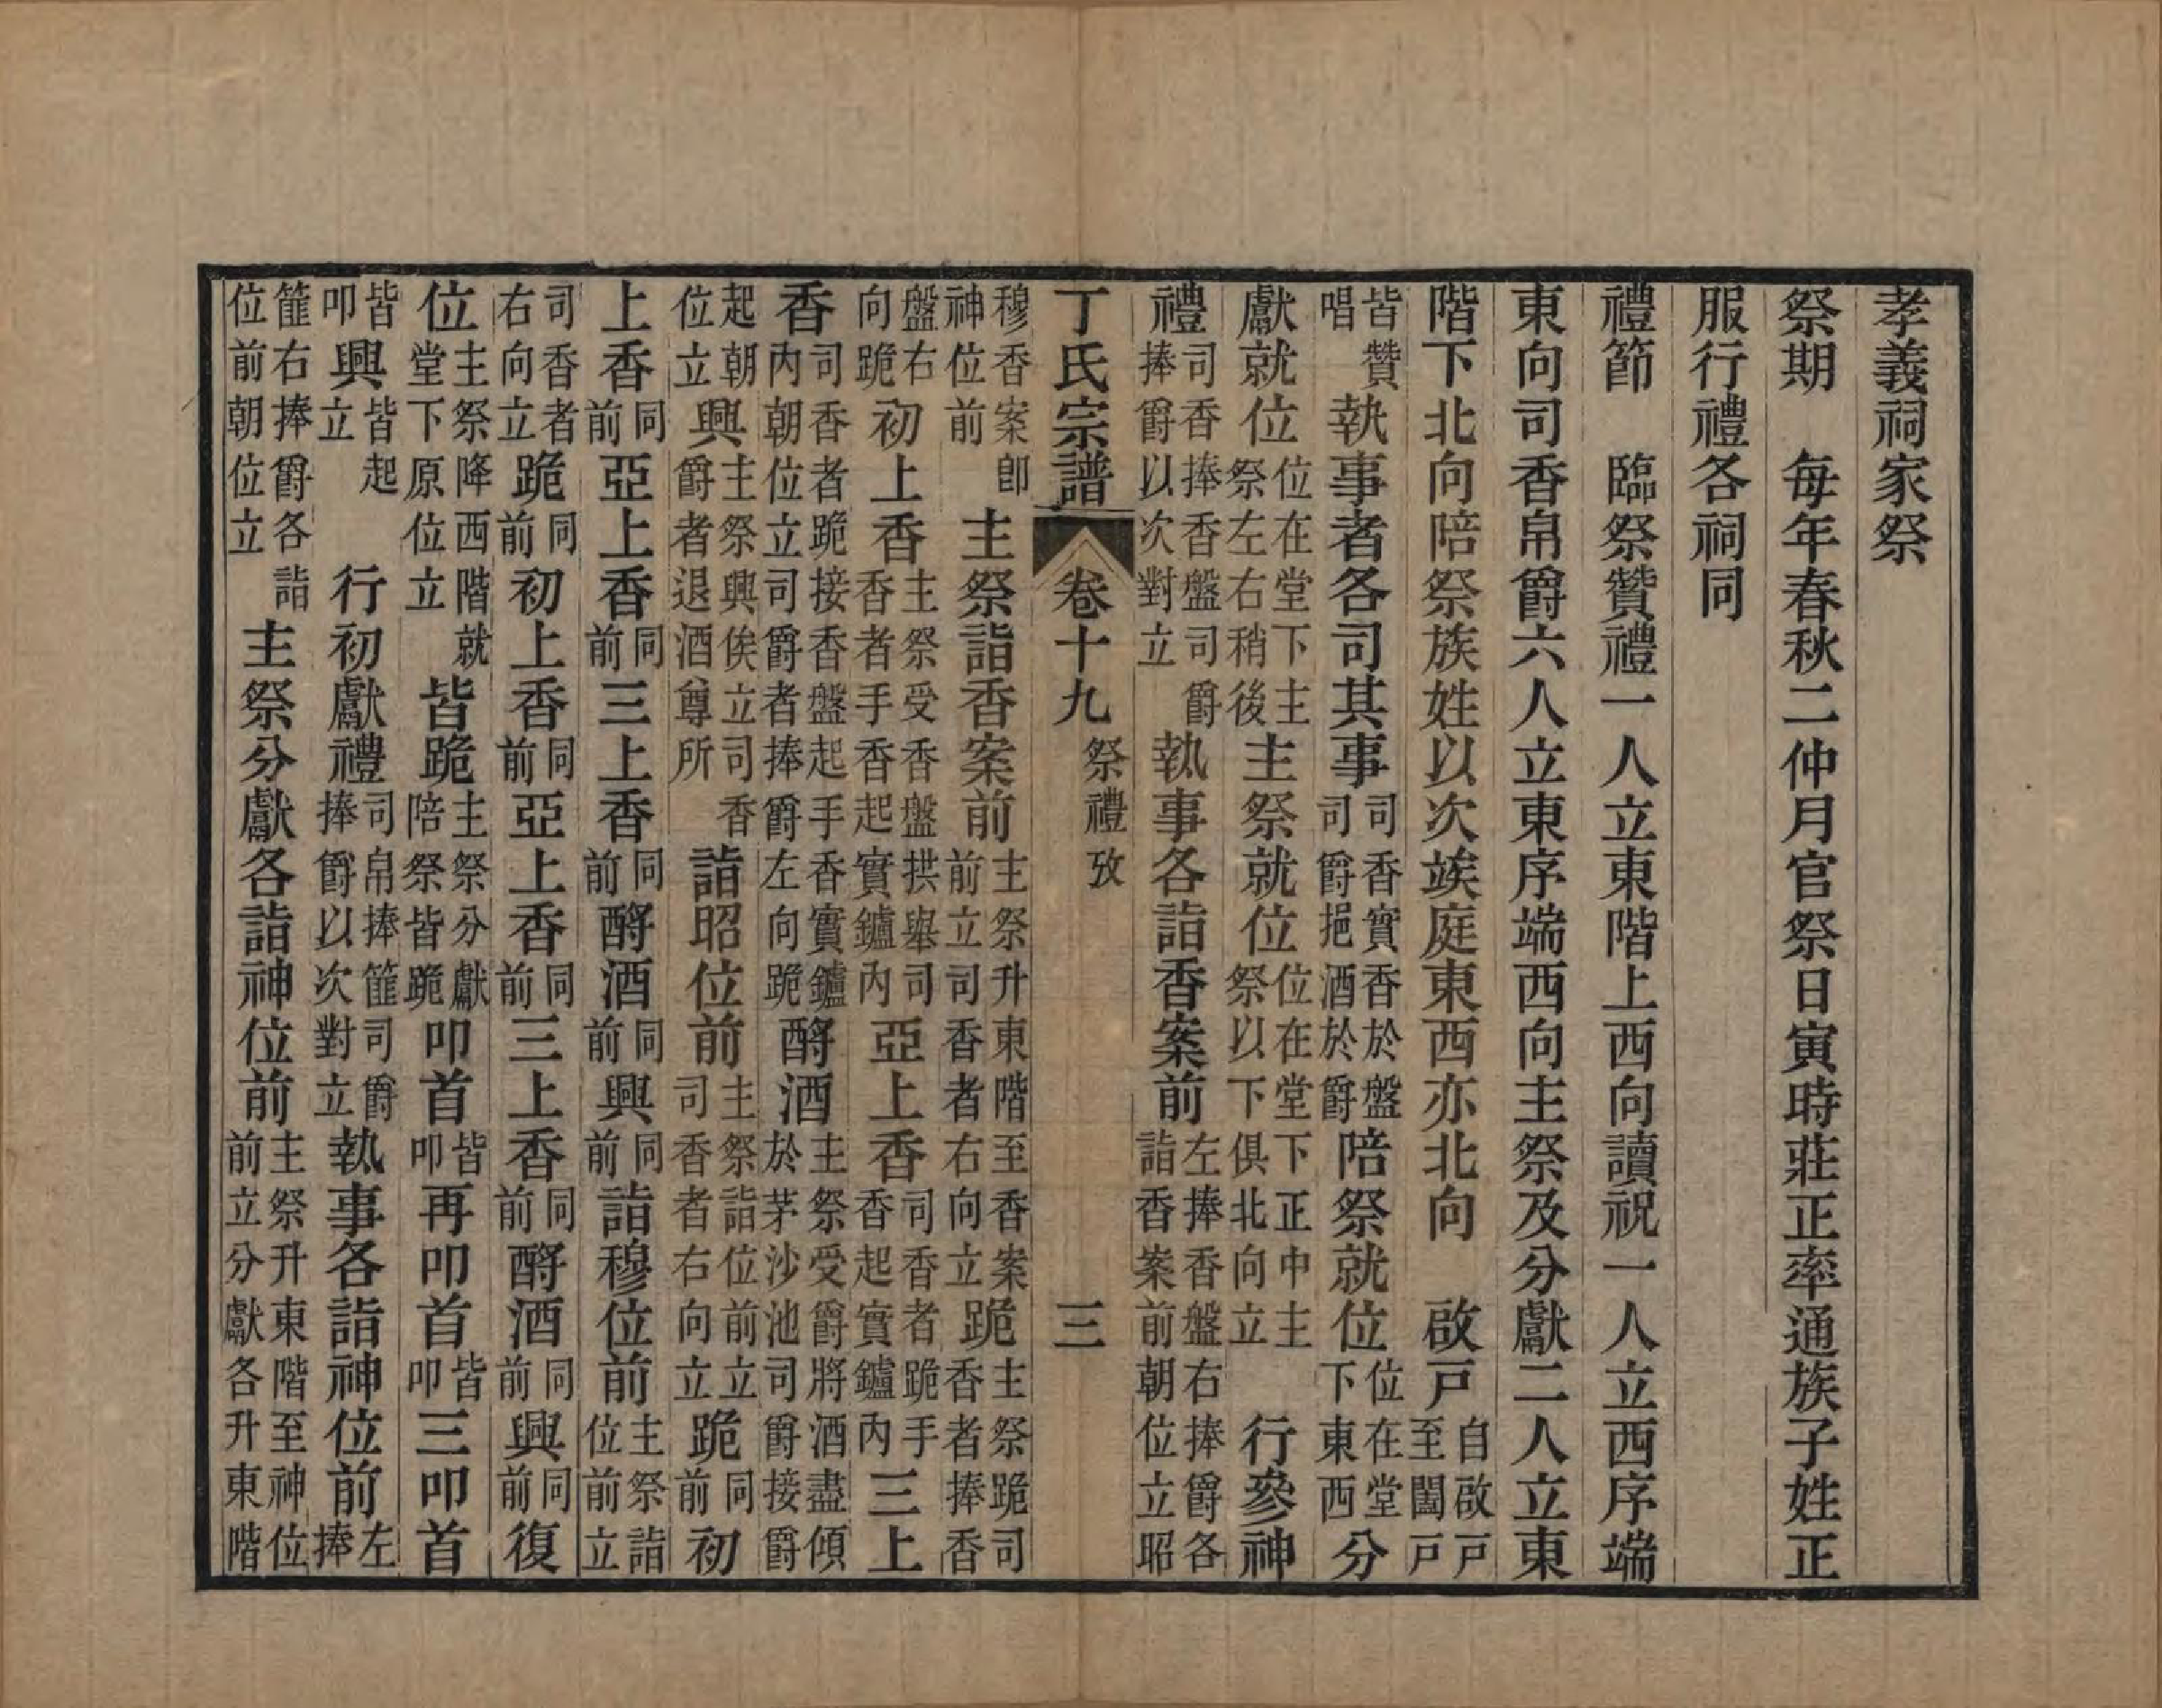 孝義祠家祭
祭期　每年春秋二仲月官祭日寅時莊正率通族子姓正
服行禮各祠同
禮節　臨祭贊禮一人立東階上西向讀祝一人立西序端
東向司香帛爵六人立東序端西向主祭及分獻二人立東
階下北向陪祭族姓以次竢庭東西亦北向　啟戸自啟戸至闔戸
皆贊唱執事者各司其事司香實香於盤司爵挹酒於爵陪祭就位位在堂下東西分
獻就位位在堂下主祭左右稍後主祭就位位在堂下正中主祭以下俱北向立　行參神
禮司香捧香盤司爵捧爵以次對立執事各詣香案前左捧香盤右捧爵各詣香案前朝位立昭
丁氏宗譜　卷十九　祭禮攷　三
穆香案即神位前主祭詣香案前主祭升東階至香案前立司香者右向立跪主祭跪司香者捧香
盤右向跪初上香主祭受香盤拱舉司香者手香起實鑪內亞上香司香者跪手香起實鑪內三上
香司香者跪接香盤起手香實鑪內朝位立司爵者捧爵左向跪酹酒主祭受爵將酒盡傾於茅沙池司爵接爵
起朝位立興主祭興俟立司香爵者退酒尊所詣昭位前主祭詣位前立司香者右向立跪同前初
上香同前亞上香同前三上香同前酹酒同前興同前詣穆位前主祭詣位前立
司香者右向立跪同前初上香同前亞上香同前三上香同前酹酒同前興同前復
位主祭降西階就堂下原位立皆跪主祭分獻陪祭皆跪叩首皆叩再叩首皆叩三叩首
皆叩興皆起立　行初獻禮司帛捧篚司爵捧爵以次對立執事各詣神位前左捧
篚右捧爵各詣位前朝位立主祭分獻各詣神位前主祭升東階至神位前立分獻各升東階